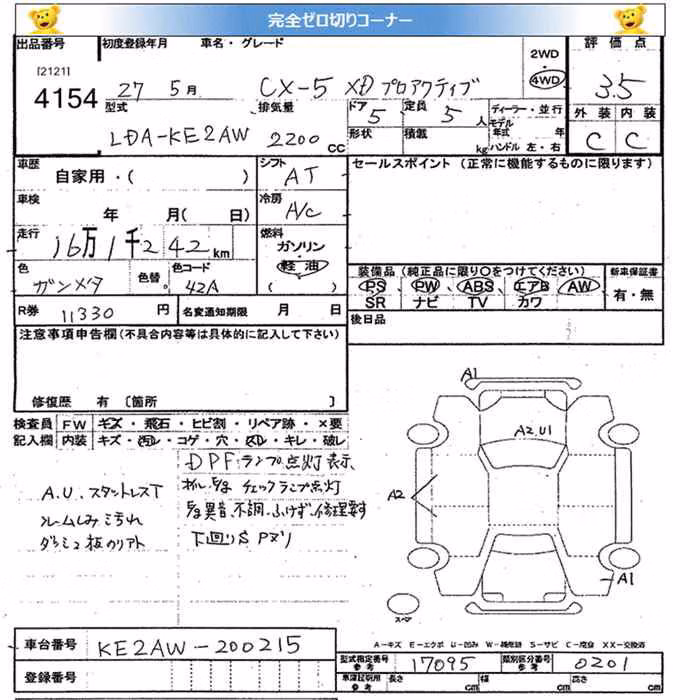 完全ゼロ切りコーナー
出品番号 初度登録年月 車名・グレード 2WD 評価点
[2121]
4154 27 5月 CX-5 XD プロアクティブ 4WD 3.5
型式 排気量 ドア 5 定員 5人 ディーラー・並行 外装 内装
LDA-KE2AW 2200cc 形状 積載 kg モデル年式 年 ハンドル 左・右 C C
車歴 自家用・( ) シフト AT セールスポイント (正常に機能するものに限ります)
車検 年 月( 日) 冷房 A/C
走行 16万1千242km 燃料 ガソリン・軽油
色 ガンメタ 色替 。 色コード 42A ( ) 装備品 (純正品に限り○をつけてください) 新車保証書
PS PW ABS エアB AW 有・無
SR ナビ TV カワ
R券 11330円 名変通知期限 月 日 後日品
注意事項申告欄(不具合内容等は具体的に記入して下さい)
修復歴 有〔箇所 〕
検査員 FW キズ・飛石・ヒビ割・リペア跡・×要
記入欄 内装 キズ・汚れ・コゲ・穴・スレ・キレ・破レ
DPFランプ点灯表示
チェックランプ点灯
異音、不調、ふけず、修理要す
下回りS Pヌリ
A.U. スタットレスT
シミ汚れ
A1
A2,U1
A2
A1
スペア
A-キズ E-エクボ U-凹み W-補修跡 S-サビ C-腐食 XX-交換済
車台番号 KE2AW-200215
登録番号
型式指定番号 参考 17095 類別区分番号 参考 0201
車庫証明用 参考 長さ cm 幅 cm 高さ cm